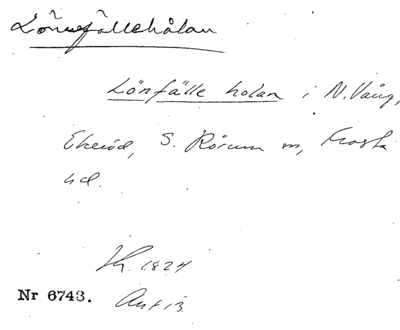 Lönnfällehålan
Lönfälle holan i N. Vång,
Ekeröd, S. Rörum sn, Frosta
hd.
1824
Nr 6743.